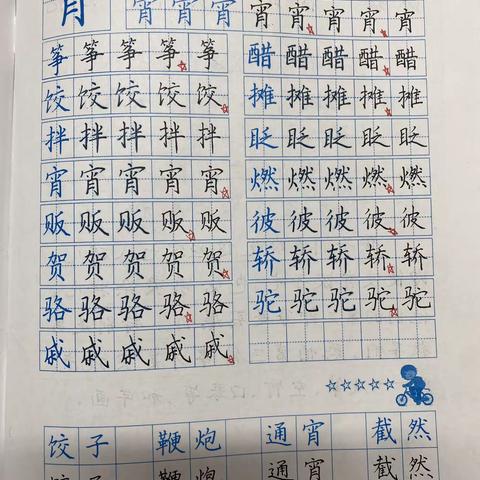 宵 宵 宵 宵 宵 宵 宵 宵
筝 筝 筝 筝 筝 醋 醋 醋 醋 醋
饺 饺 饺 饺 饺 摊 摊 摊 摊 摊
拌 拌 拌 拌 拌 眨 眨 眨 眨 眨
宵 宵 宵 宵 宵 燃 燃 燃 燃 燃
贩 贩 贩 贩 贩 彼 彼 彼 彼 彼
贺 贺 贺 贺 贺 轿 轿 轿 轿 轿
骆 骆 骆 骆 骆 驼 驼 驼 驼 驼
戚 戚 戚 戚 戚
饺子 鞭炮 通宵 截然
饺子 鞭炮 通宵 截然